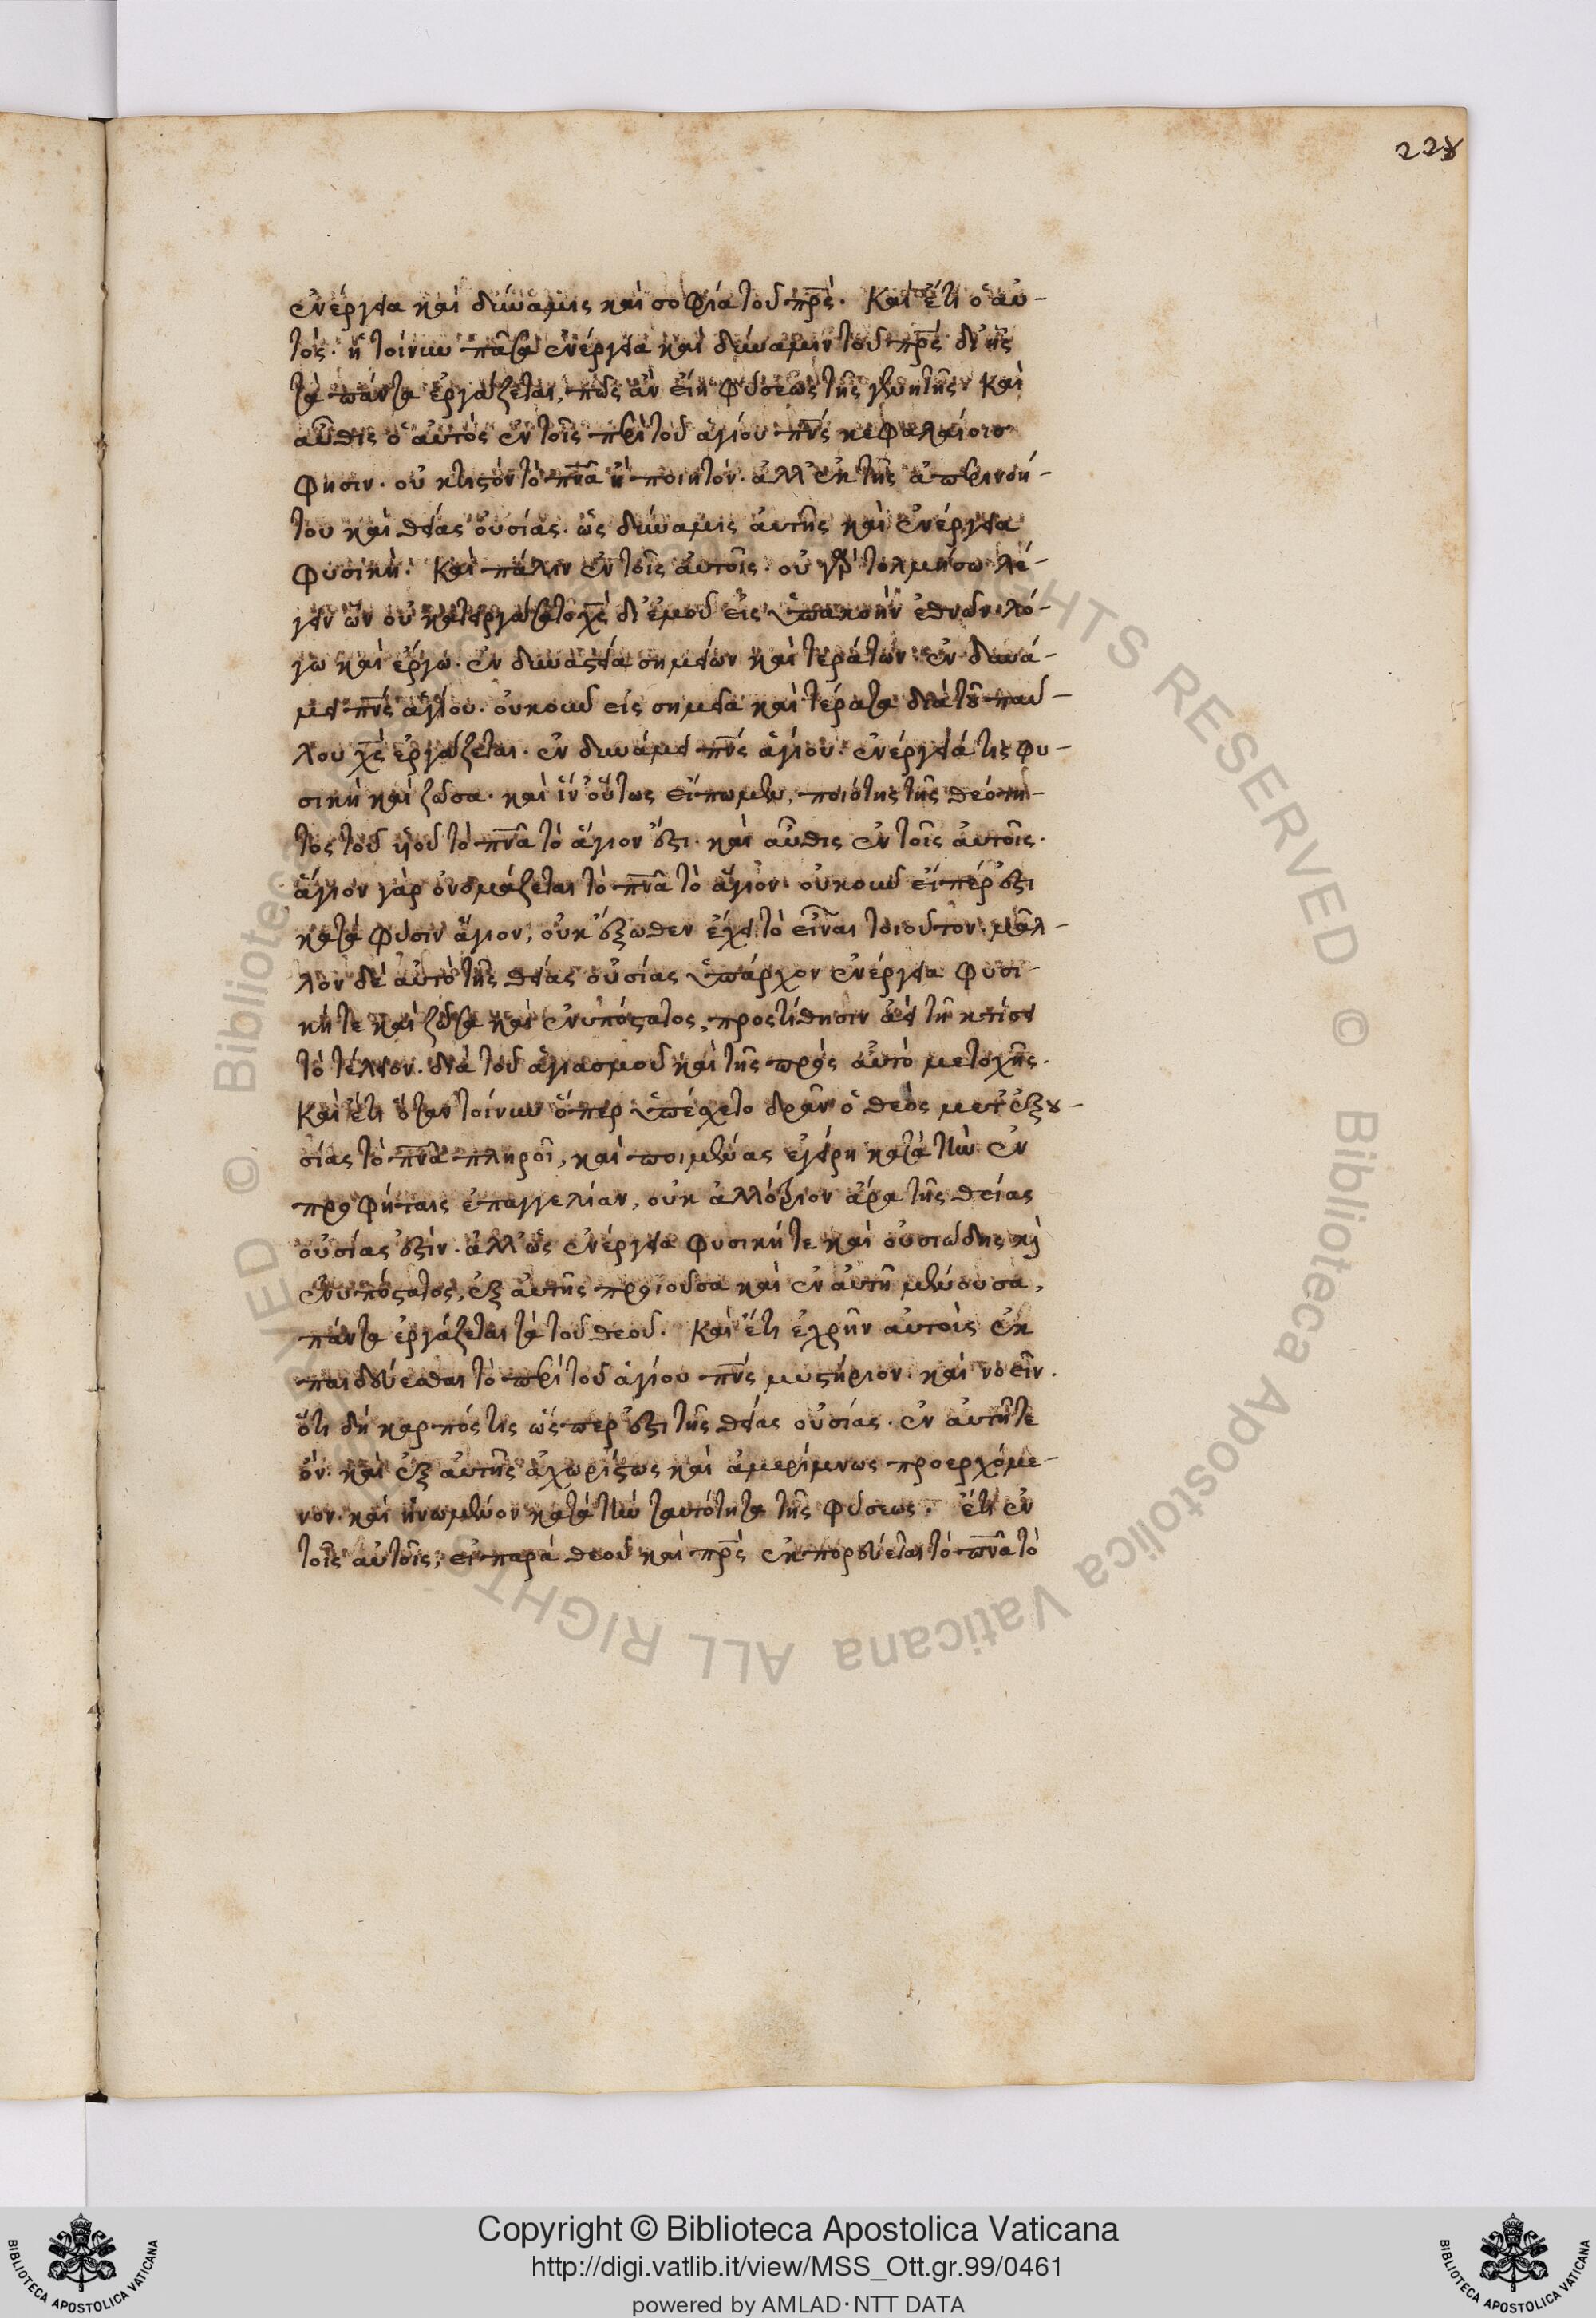 228
ἐνέργεια καὶ δύναμις καὶ σοφία τοῦ πρς. Καὶ ἔτι ὁ αὐ-
τός. ἡ τοίνυν πᾶσα ἐνέργεια καὶ δύναμιν τοῦ πρς δι' ἧς
τὰ πάντα ἐργάζεται, πῶς ἂν εἴη φύσεως τῆς γενητῆς. Καὶ
αὖθις ὁ αὐτὸς ἐν τοῖς περὶ τοῦ ἁγίου πνς κεφαλαίοισ
φησιν. οὐ κτιστὸν τὸ πνα ἢ ποιητόν. ἀλλ' ἐκ τῆς ἀπερινοή-
του καὶ θείας οὐσίας. ὡς δύναμις αὐτῆς καὶ ἐνέργεια
φυσική. Καὶ πάλιν ἐν τοῖς αὐτοῖς. οὐ γὰρ τολμήσω λέ-
γειν ὧν οὐ κατειργάσατο χς δι' ἐμοῦ εἰς ὑπακοὴν ἐθνῶν λό-
γω καὶ ἔργω. ἐν δυναστεία σημείων καὶ τεράτων. ἐν δυνά-
μει πνς ἁγίου. οὐκοῦν εἰς σημεῖα καὶ τέρατα διὰ τοῦ παύ-
λου χς ἐργάζεται. ἐν δυνάμει πνς ἁγίου. ἐνέργειά τις φυ-
σικὴ καὶ ζῶσα. καὶ ἵν' οὕτως εἴπωμεν, ποιότης τῆς θεότη-
τος τοῦ υἱοῦ τὸ πνα τὸ ἅγιον ἐστι. καὶ αὖθις ἐν τοῖς αὐτοῖς.
ἅγιον γὰρ ὀνομάζεται τὸ πνα τὸ ἅγιον. οὐκοῦν εἴπέρ ἐστι
κατὰ φύσιν ἅγιον, οὐκ ἔξωθεν ἔχει τὸ εἶναι τοιοῦτον. μᾶλ-
λον δὲ αὐτὸ τῆς θείας οὐσίας ὑπάρχον ἐνέργεια φυσι-
κή τε καὶ ζῶσα καὶ ἐνυπόστατος, προστίθησιν ἀεὶ τῆ κτίσει
τὸ τέλειον. διὰ τοῦ ἁγιασμοῦ καὶ τῆς πρὸς αὐτὸ μετοχῆς.
Καὶ ἔτι ὅταν τοίνυν ὅπερ ὑπέσχετο δρᾶν ὁ θεὸς μετ' ἐξου-
σίας τὸ πνα πληροῖ, καὶ ποιμένας ἐγείρη κατὰ τὴν ἐν
προφήταις ἐπαγγελίαν, οὐκ ἀλλότριον ἄρα τῆς θείας
οὐσίας ἐστίν. ἀλλ' ὡς ἐνέργεια φυσική τε καὶ οὐσιώδης καὶ
ἐνυπόστατος, ἐξ αὐτῆς προϊοῦσα καὶ ἐν αὐτῆ μένουσα,
πάντα ἐργάζεται τὰ τοῦ θεοῦ. Καὶ ἔτι ἐχρῆν αὐτοὺς ἐκ
παιδεύεσθαι τὸ περὶ τοῦ ἁγίου πνς μυστήριον. καὶ νοεῖν.
ὅτι δὴ καρπός τις ὥσπερ ἐστι τῆς θείας οὐσίας. ἐν αὐτῆ τε
ὄν. καὶ ἐξ αὐτῆς ἀχωρίστως καὶ ἀμερίμνως προερχόμε-
νον. καὶ ἡνωμένον κατὰ τὴν ταυτότητα τῆς φύσεως. ἔτι ἐν
τοῖς αὐτοῖς, εἰ παρὰ θεοῦ καὶ πρς ἐκπορεύεται τὸ πνα τὸ
© Biblioteca Apostolica Vaticana ALL RIGHTS RESERVED
Copyright © Biblioteca Apostolica Vaticana
http://digi.vatlib.it/view/MSS_Ott.gr.99/0461
powered by AMLAD·NTT DATA
BIBLIOTECA APOSTOLICA VATICANA
BIBLIOTECA APOSTOLICA VATICANA